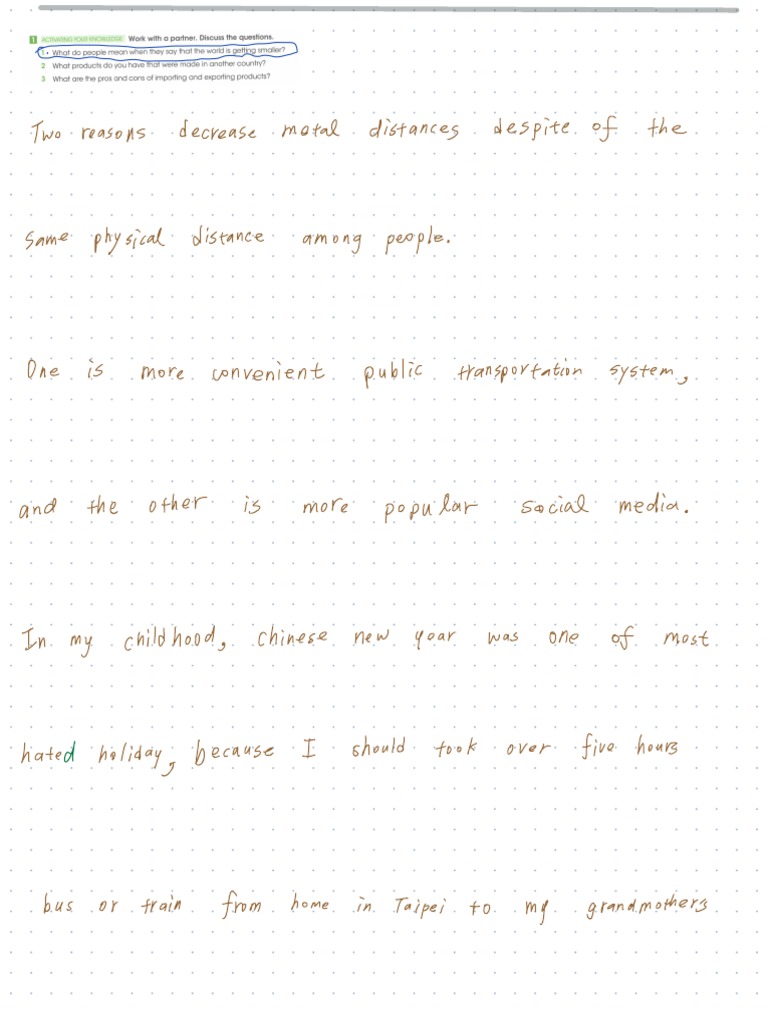 1 ACTIVATING YOUR KNOWLEDGE Work with a partner. Discuss the questions.
1 • What do people mean when they say that the world is getting smaller?
2 What products do you have that were made in another country?
3 What are the pros and cons of importing and exporting products?
Two reasons decrease metal distances despite of the
same physical distance among people.
One is more convenient public transportation system,
and the other is more popular social media.
In my childhood, chinese new year was one of most
hated holiday, because I should took over five hours
bus or train from home in Taipei to my grandmothers